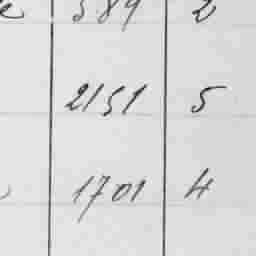 589 2
2151 5
1701 4